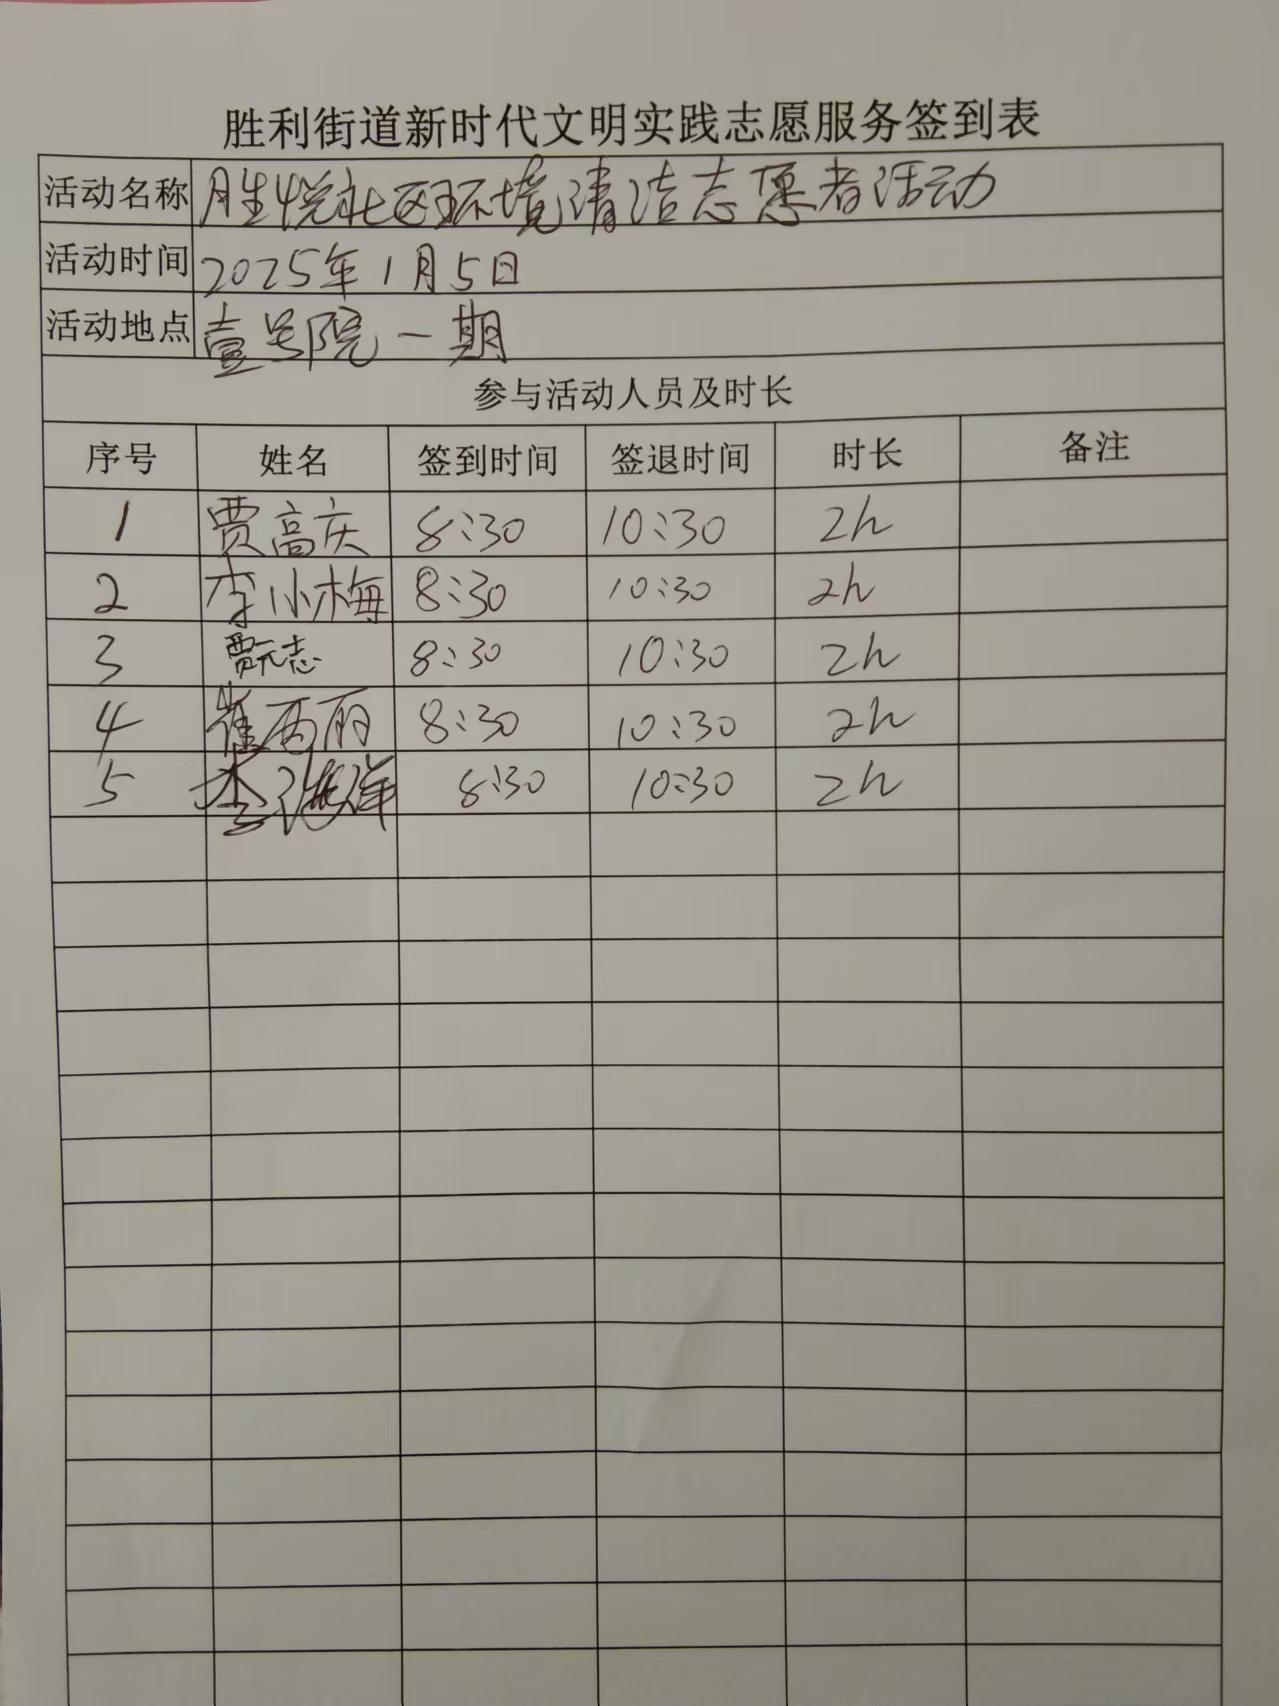 胜利街道新时代文明实践志愿服务签到表
活动名称 胜悦社区环境清洁志愿者活动
活动时间 2025年1月5日
活动地点 壹号院一期
参与活动人员及时长
序号 姓名 签到时间 签退时间 时长 备注
1 贾高庆 8:30 10:30 2h
2 李小梅 8:30 10:30 2h
3 贾元志 8:30 10:30 2h
4 崔西丽 8:30 10:30 2h
5 李海洋 8:30 10:30 2h